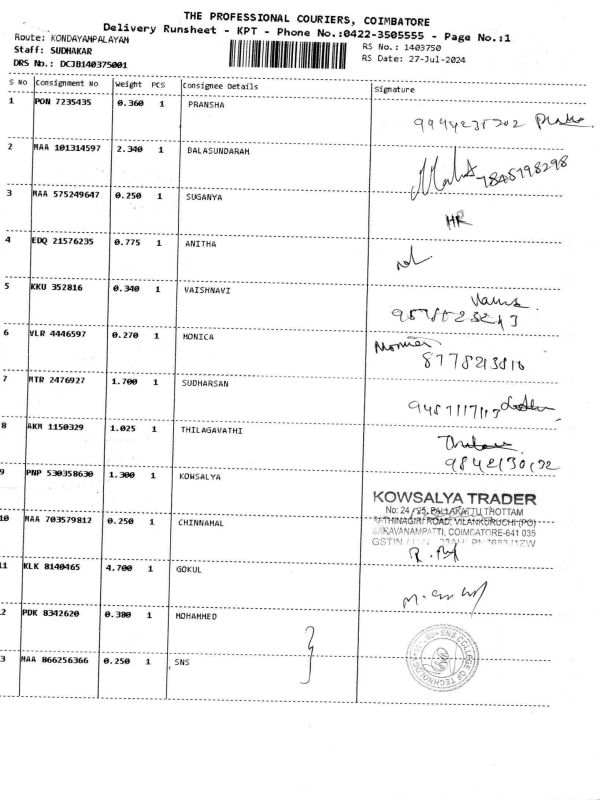 THE PROFESSIONAL COURIERS, COIMBATORE
Delivery Runsheet - KPT - Phone No.:0422-3505555 - Page No.:1
Route: KONDAYAMPALAYAM
Staff: SUDHAKAR
DRS No.: DCJB140375001
RS No.: 1403750
RS Date: 27-Jul-2024
S No Consignment No Weight PCS Consignee Details Signature
1 PON 7235435 0.360 1 PRANSHA
2 MAA 101314597 2.340 1 BALASUNDARAM
3 MAA 575249647 0.250 1 SUGANYA HR
4 EDQ 21576235 0.775 1 ANITHA
5 KKU 352816 0.340 1 VAISHNAVI
6 VLR 4446597 0.270 1 MONICA
8778213810
7 MTR 2476927 1.700 1 SUDHARSAN
8 AKM 1150329 1.025 1 THILAGAVATHI
9 PNP 530358630 1.300 1 KOWSALYA
KOWSALYA TRADER
No: 24 / 25, PALLAKATTU THOTTAM
RATHINAGIRI ROAD, VILANKURUCHI (PO)
SARAVANAMPATTI, COIMBATORE-641 035
GSTIN
10 MAA 703579812 0.250 1 CHINNAMAL
11 KLK 8140465 4.700 1 GOKUL
2 PDK 8342620 0.380 1 MOHAMMED
3 MAA 866256366 0.250 1 SNS
SNS COLLEGE OF TECHNOLOGY